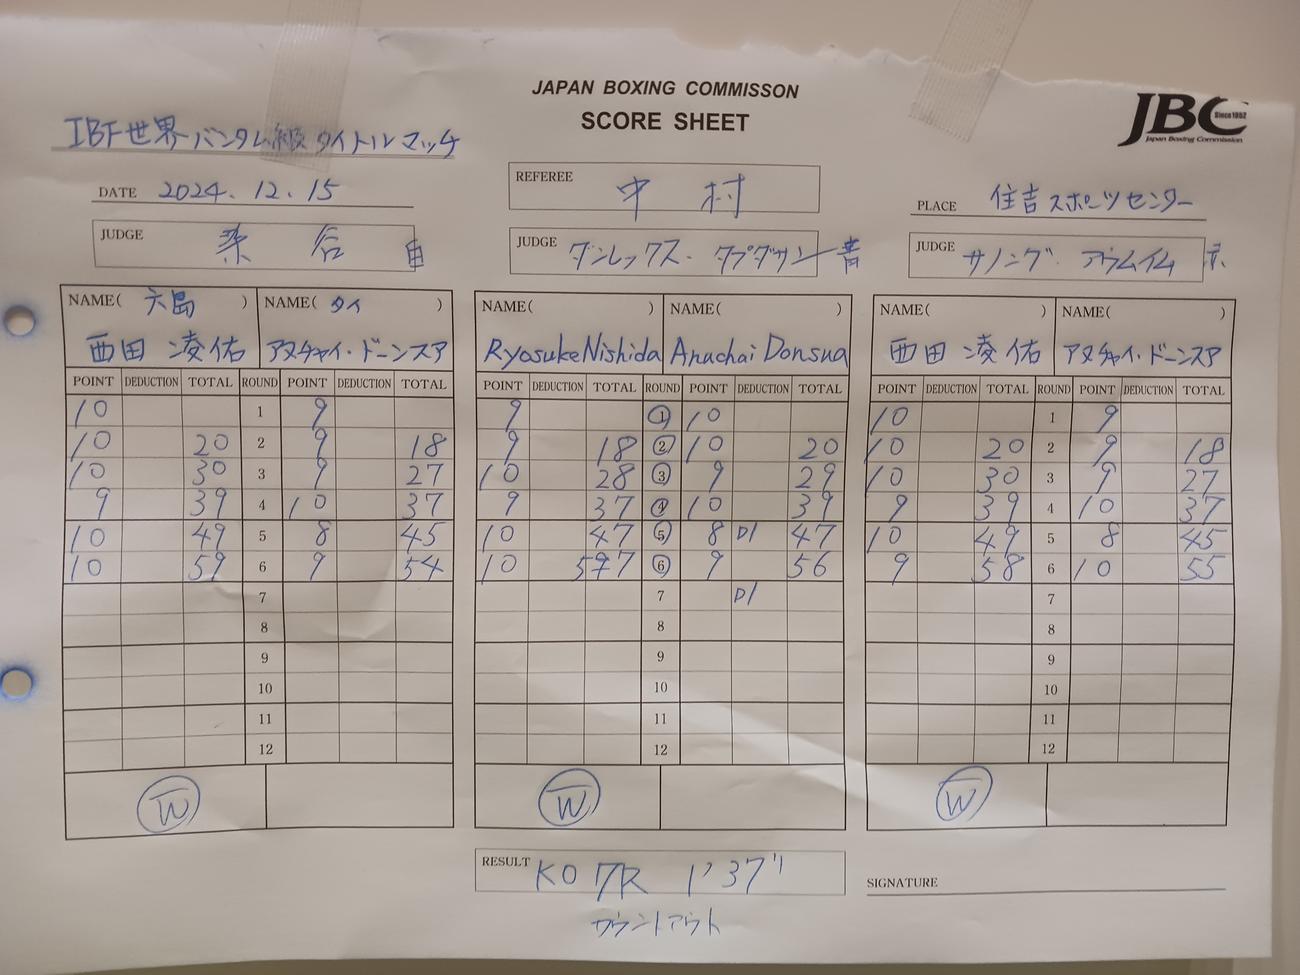 JAPAN BOXING COMMISSON
SCORE SHEET
JBC Since1952
Japan Boxing Commission
IBF世界バンタム級タイトルマッチ
DATE 2024.12.15
REFEREE 中村
PLACE 住吉スポーツセンター
JUDGE
JUDGE
JUDGE
NAME( 六島 ) NAME( タイ ) NAME( ) NAME( ) NAME( ) NAME( )
西田 凌佑 アヌチャイ・ドーンスア Ryosuke Nishida Anuchai Donsua 西田 凌佑 アヌチャイ・ドーンスア
POINT DEDUCTION TOTAL ROUND POINT DEDUCTION TOTAL POINT DEDUCTION TOTAL ROUND POINT DEDUCTION TOTAL POINT DEDUCTION TOTAL ROUND POINT DEDUCTION TOTAL
10 1 9 9 1 10 10 1 9
10 20 2 9 18 9 18 2 10 20 10 20 2 9 18
10 30 3 9 27 10 28 3 9 29 10 30 3 9 27
9 39 4 10 37 9 37 4 10 39 9 39 4 10 37
10 49 5 8 45 10 47 5 8 D1 47 10 49 5 8 45
10 59 6 9 54 10 57 6 9 56 9 58 6 10 55
7 7 D1 7
8 8 8
9 9 9
10 10 10
11 11 11
12 12 12
W W W
RESULT KO 7R 1'37"
カウントアウト
SIGNATURE